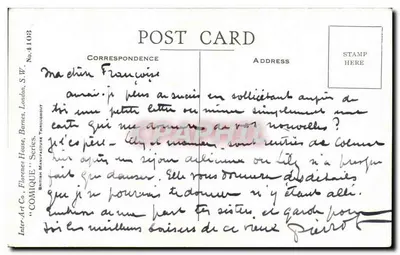 POST CARD
CORRESPONDENCE
ADDRESS
STAMP
HERE
Inter-Art Co., Florence House, Barnes, London, S.W.
"COMIQUE" Series.
British Manufacture Throughout
No. 4103
Ma chère Françoise
aurais-je plus de succès en sollicitant auprès de
toi une petite lettre ou même simplement une
carte qui me donner de vos nouvelles?
J'espère Lily et maman sont rentrées de
après un séjour délicieux ou Lily n'a presque
fait que danser. Elle vous donnera des détails
que je ne pourrais te donner n'y étant allé.
Embrasse de ma part tes sisters, et garde pour
toi les meilleurs baisers de ce vieux Pierrot